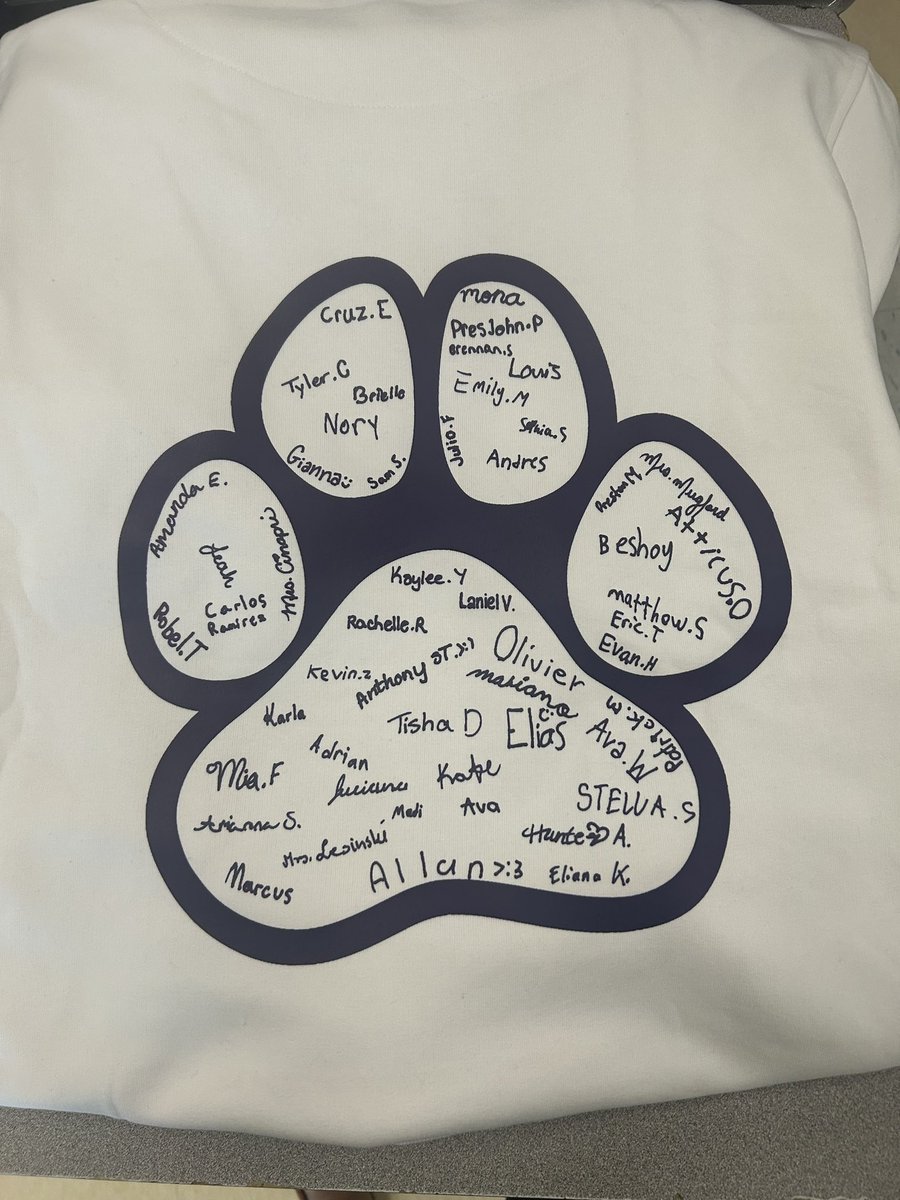 Cruz.E
Tyler.C
Brielle
Nory
Gianna
Sam S.
mona
PresJohn.P
Brennan.S
Louis
Emily.M
Julio.T
Andres
Amanda E.
Leah
Mrs. Cindri
Carlos
Ramirez
Robel.T
Mrs. Mugford
Preston M
Atticus.O
Beshoy
matthow.S
Eric.T
Evan.H
Kaylee.Y
Laniel V.
Rachelle.R
Olivier
Kevin.z
Anthony
mariana
Karla
Tisha D
Elias
Ava.W
Adrian
Mia.F
Luciana
Kate
STELLA.S
Arianna S.
Madi
Ava
Hunter A.
Mrs. Lesinski
Marcus
Allan >:3
Eliana K.